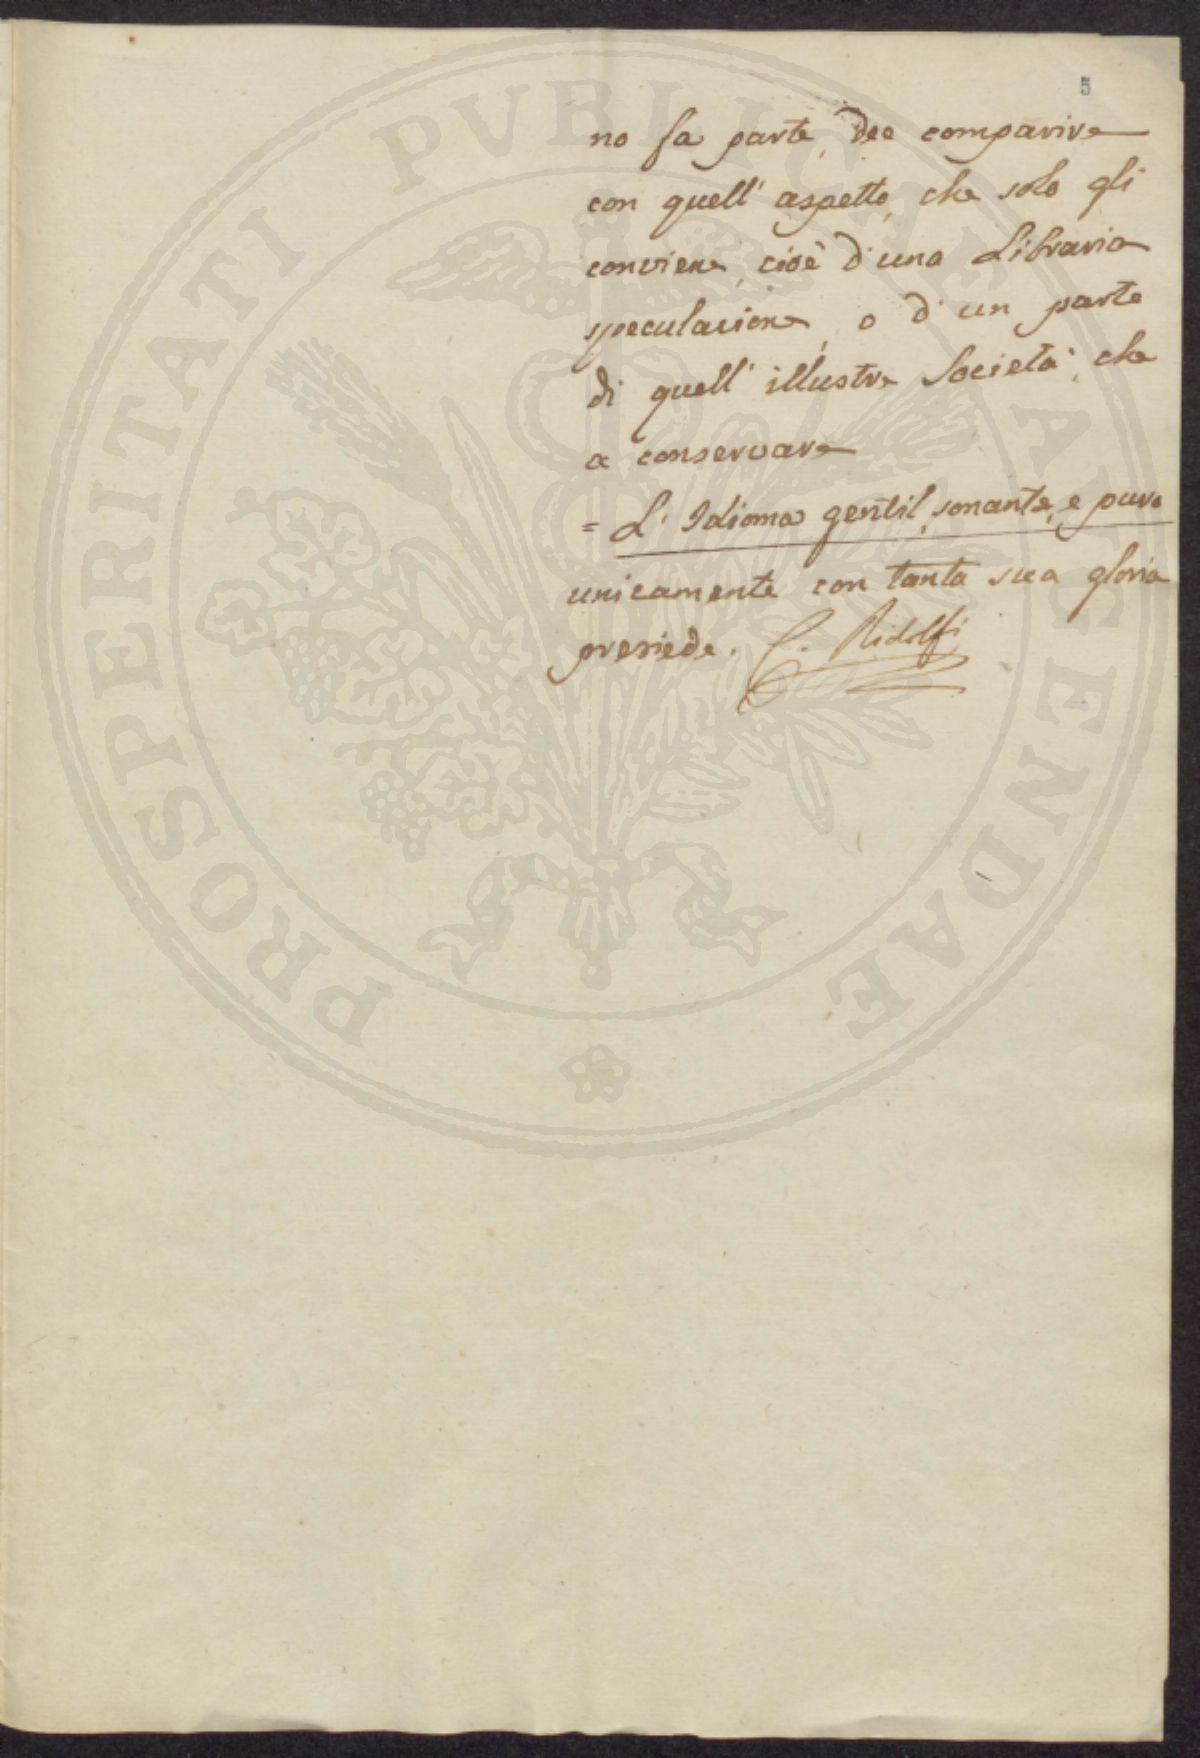 5
no fa parte, dee comparire
con quell' aspetto, che solo gli
conviene, cioè d'una Libraria
speculazione, o d'un parte
di quell' illustre Società, che
a conservare
= L' Idioma gentil, sonante, e puro
unicamente con tanta sua gloria
presiede. C. Ridolfi
PROSPERITATI PVBLICAE AVGENDAE